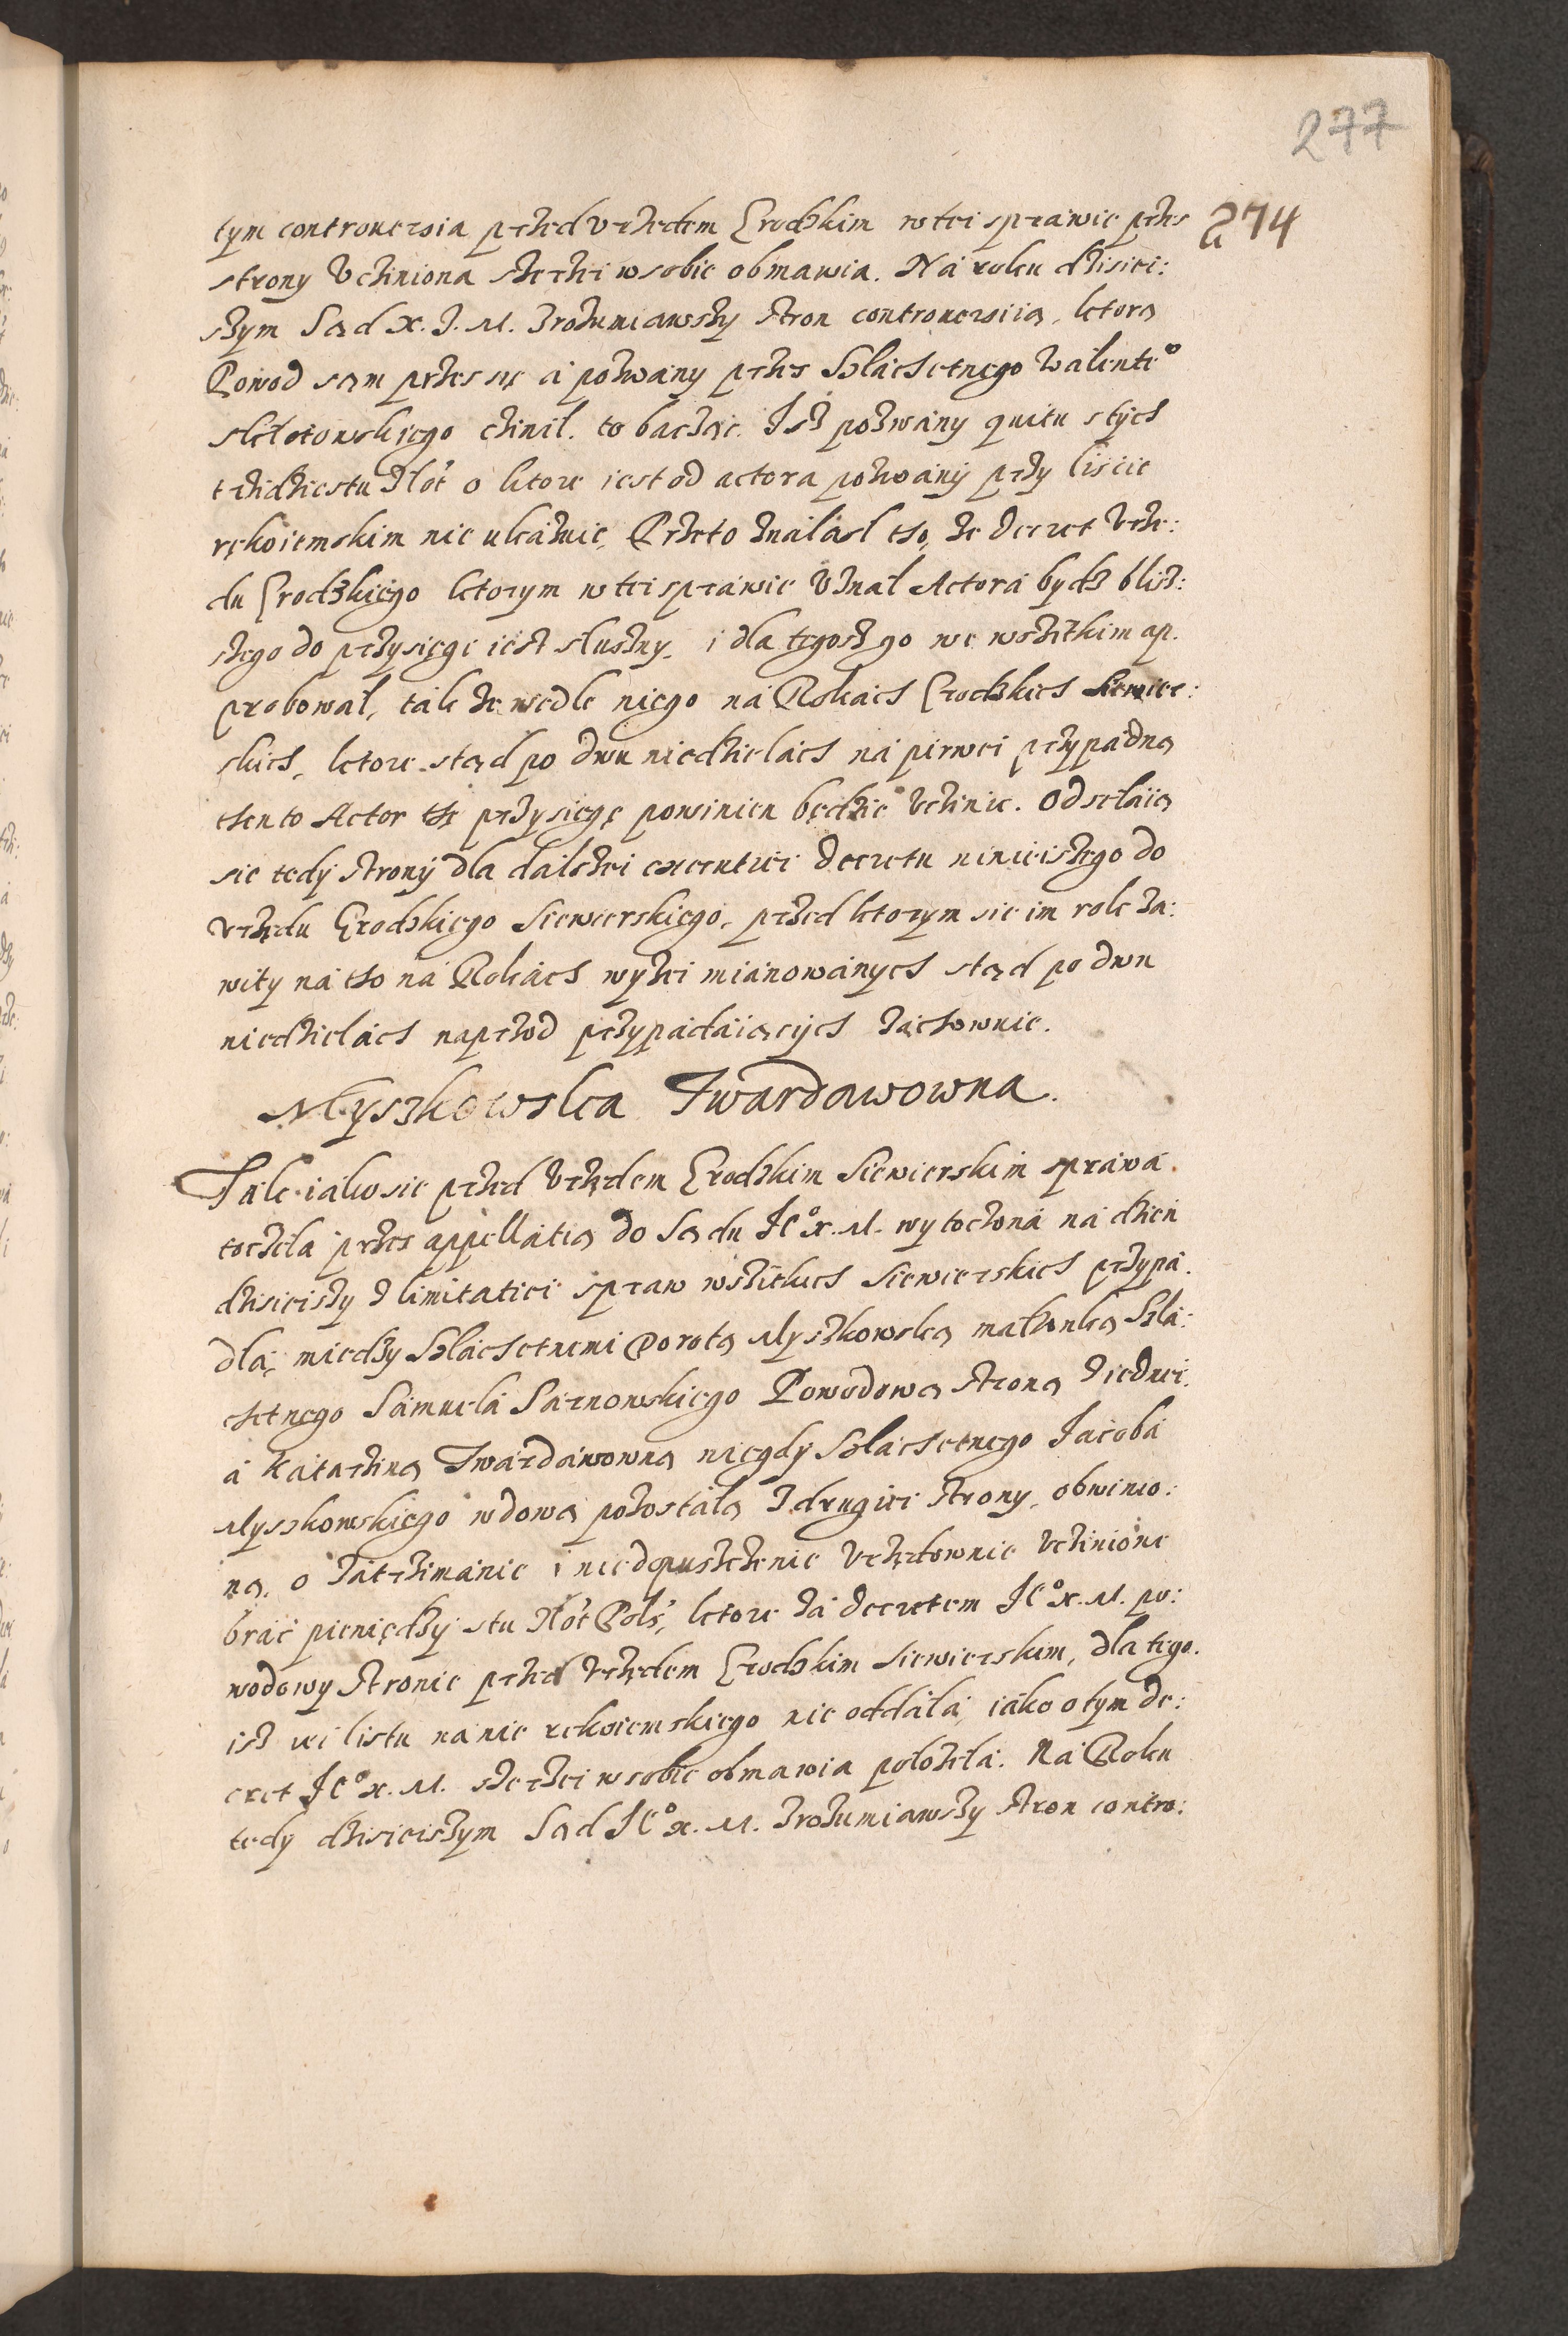 277
274
tym controuersia przed Vrzedem Grodzkim w tei sprawie przes
strony Vcziniona szerzei w sobie obmawia. Ná roku dzisiei:
szym Sąd X. J. M. Zrozumiawszy stron controuersiią, ktorą
Powod sąm przes się á pozwany przes Szlachetnego Walente°
czinil. to bacząc. Isz pozwány quitu s tých
trzidziestu Złot o ktore iest od actora pozwaný przy liscie
rękoiemskim nie ukázuie, Przeto ználasl tho, że Decret Vrze:
du Grodzkiégo ktorym w tei spráwie Vznal Actorá bydz bliz:
szego do przysięgi iest słuszny, i dla tegosz go we wszitkim ap.
probowal, tak że wedle niego ná Rokách Grodzkich Siewier:
skich, ktore stąd po dwu niedzielách ná pirwei przypádną
then to Actor thę przysięgę powinien będzie Vczinic. Odsełáią
się tedý stroný dla dálszei executiei Decretu ninieiszego do
Vrzędu Grodzkiego Siewierskiego, przed ktorym sie im rok za:
wity ná tho ná Rokách wyżei miánowánych stąd po dwu
niedzielách naprzod przypádáiącých záchowuie.
Myszkowska Twardawowna.
Ták iáko sie przed Vrzędem Grodzkim Siewierskim spráwá
toczeła przes appellátią do Sądu JE° X. M. wytoczoná ná dzień
dzisieiszy z limitátiei spraw wszitkich Siewierskich przypá.
dlá, miedzy Szláchetnemi Dorotą Myszkowską małżonką Szlá:
chetnego Sámuelá Sarnowskiego Powodową stroną z iednei.
á Kátárziną Twárdáwowną niegdý Szláchetnego Jácobá
Myszkowskiégo wdową pozostałą z drugiei strony, obwinio:
ną. o zátrzimánie i niedopuszczenie Vrzędownie Vczinione
brác pieniędzý stu Złot Pols, ktore zá Decretem JE° X. M. po:
wodowy stronie przed Vrzędem Grodzkim Siewierskim, dla tego.
isz iei listu ná nie rękoiemskiego nie oddáłá, iáko o tym de:
cret JE° X. M. szerzei w sobie obmawia położeła. Ná Roku
tedy dzisieiszym Sąd JE° X. M. zrozumiawszy stron contro: